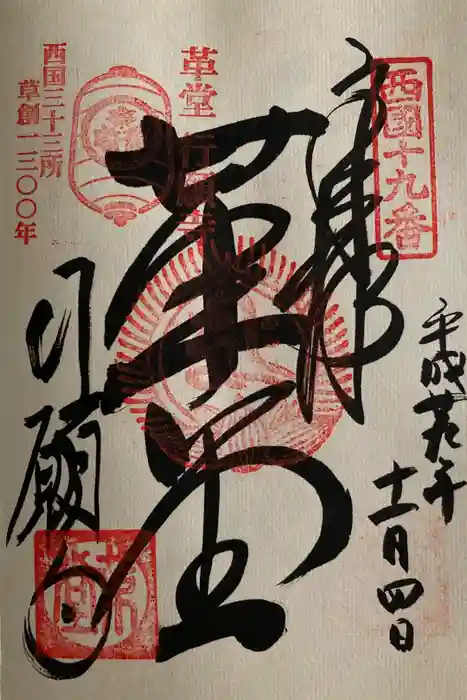 西國十九番
奉拝
平成廿九年
十二月四日
革堂
革堂
行願寺
西国三十三所
草創一三〇〇年
行願寺